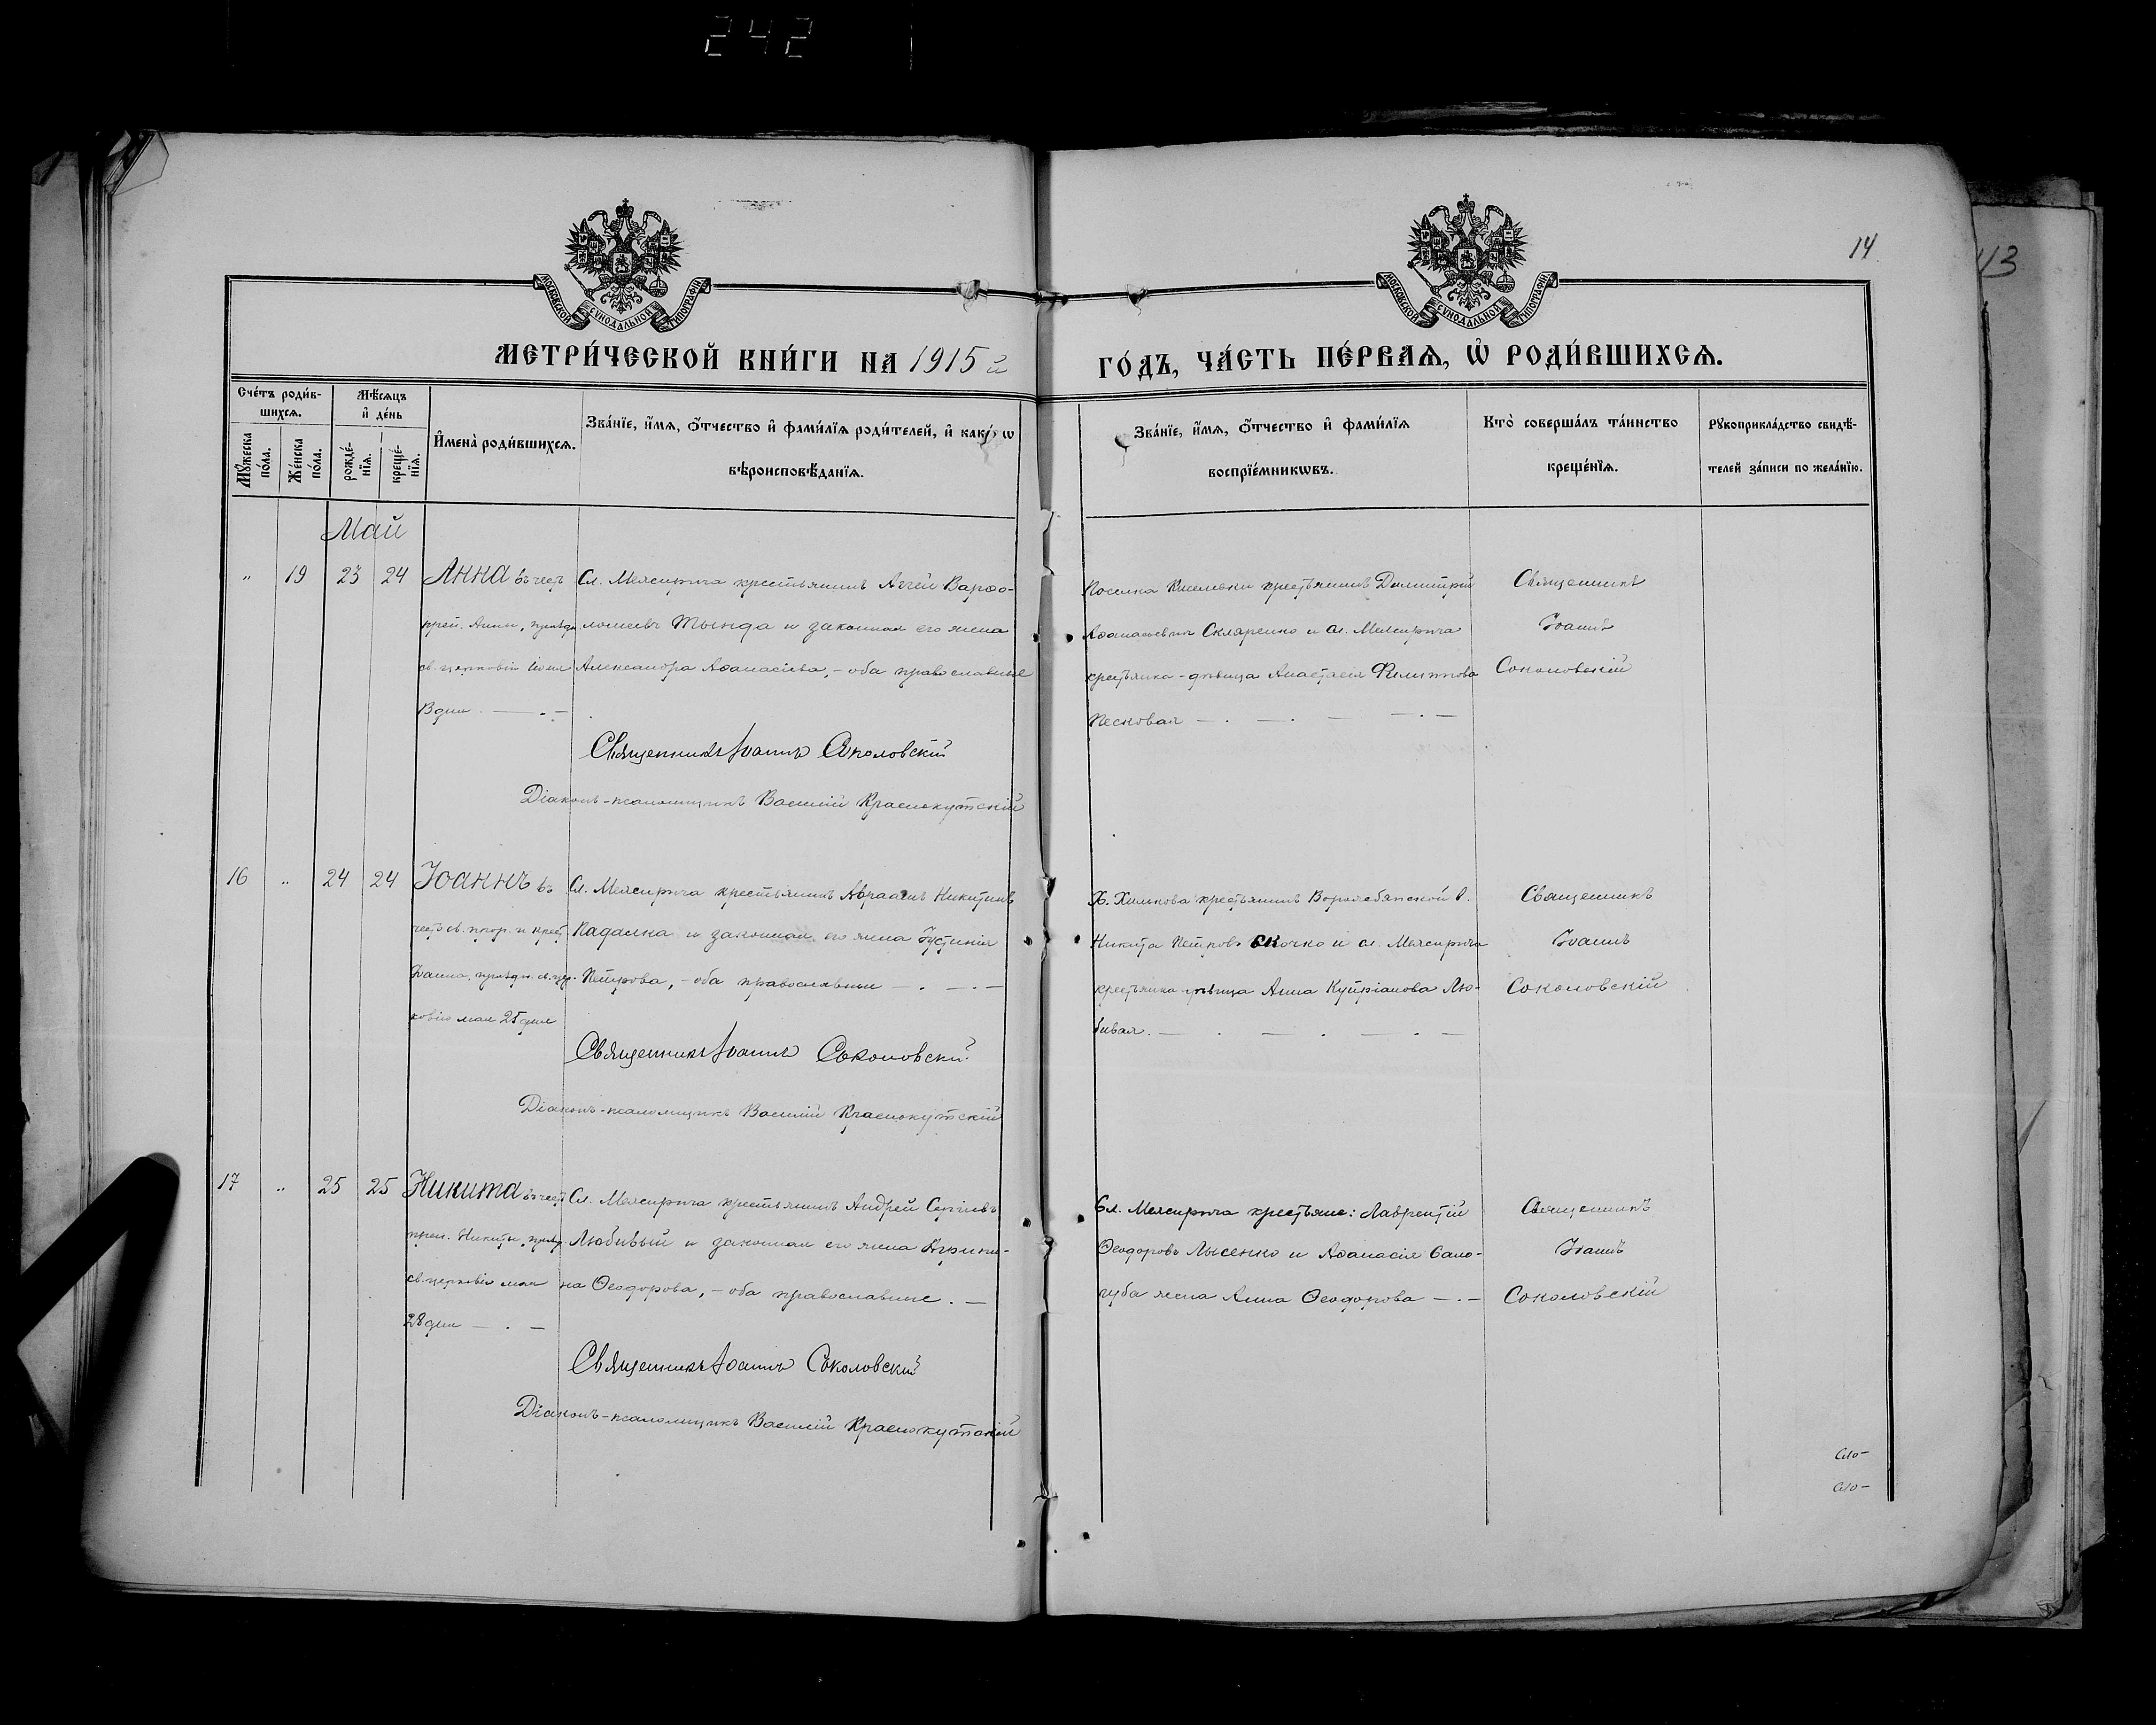 242
14
43
МОСКОВСКОЙ СѴНОДАЛЬНОЙ ТИПОГРАФІИ
МОСКОВСКОЙ СѴНОДАЛЬНОЙ ТИПОГРАФІИ
МЕТРИ́ЧЕСКОЙ КНИ́ГИ НА 1915й
ГО́ДЪ, ЧА́СТЬ ПЕ́РВАѦ, Ѡ҆ РОДИ́ВШИХСѦ.
Сче́тъ роди́в-
шихсѧ.
Мѣ́сѧцъ
и҆ де́нь
Мꙋ́жеска
по́ла.
Же́нска
по́ла.
рожде́-
нїѧ.
креще́-
нїѧ.
И҆мена̀ роди́вшихсѧ.
Зва́нїе, и҆́мѧ, ѻ҆́тчество и҆ фами́лїѧ роди́телей, и҆ как
вѣроисповѣ́данїѧ.
Зва́нїе, и҆́мѧ, ѻ҆́тчество и҆ фами́лїѧ
воспрїе́мникѡвъ.
Кто̀ соверша́лъ та́инство
креще́нїѧ.
Рꙋкоприкла́дство свидѣ́-
телей за́писи по жела́нїю.
Май
" 19 23 24 Анна въ честь
преп. Анны, праздн.
св. церковію
дня
Сл. Межирича крестьянинъ Аггей Варѳо-
ломеевъ Тында и законная его жена
Александра Аѳанасіева, - оба православные
Священникъ Іоаннъ Соколовскій
Діаконъ-псаломщикъ Василій Краснокутскій
Поселка Киселевки крестьянинъ Димитрій
Аѳанасьевичъ Скляренко и сл. Межирича
крестьянка-дѣвица Анастасія Филиппова
Песковая
Священникъ
Іоаннъ
Соколовскій
16 " 24 24 Іоаннъ въ
честь св. прор. и крест.
Іоанна, праздн. св. цер-
ковію мая 25 дня
Сл. Межирича крестьянинъ Авраамъ Никитинъ
Падалка и законная его жена Іустинія
Петрова, - оба православные
Священникъ Іоаннъ Соколовскій
Діаконъ-псаломщикъ Василій Краснокутскій
Х. Химкова крестьянинъ Ворожбянской в.
Никита Петровъ Скочко и сл. Межирича
крестьянка-дѣвица Анна Купріанова Лю-
бивая.
Священникъ
Іоаннъ
Соколовскій
17 " 25 25 Никита въ честь
преп. Никиты, праздн.
св. церковію мая
28 дня
Сл. Межирича крестьянинъ Андрей Сергіевъ
Любивый и законная его жена Агрипи-
на Ѳеодорова, - оба православные.
Священникъ Іоаннъ Соколовскій
Діаконъ-псаломщикъ Василій Краснокутскій
Сл. Межирича крестьяне: Лаврентій
Ѳеодоровъ Лысенко и Аѳанасія Сало-
губа жена Анна Ѳеодорова
Священникъ
Іоаннъ
Соколовскій